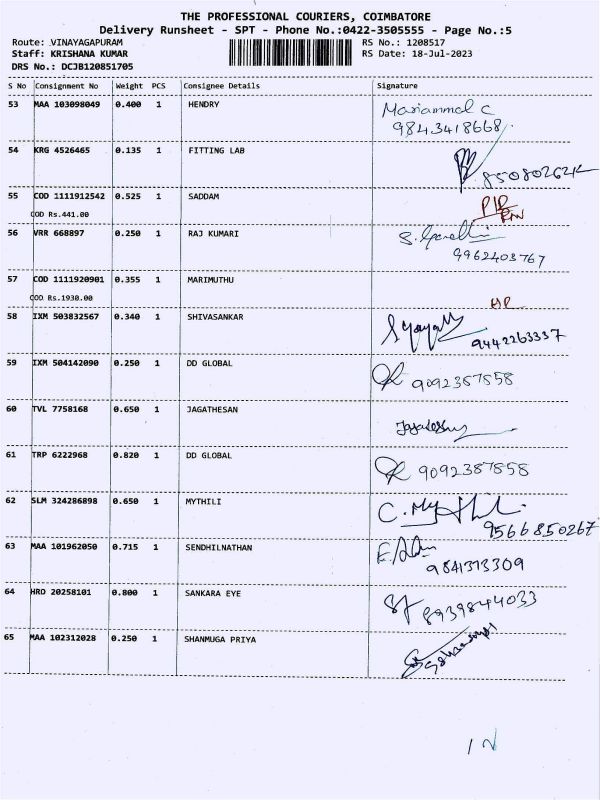 THE PROFESSIONAL COURIERS, COIMBATORE
Delivery Runsheet - SPT - Phone No.:0422-3505555 - Page No.:5
Route: VINAYAGAPURAM RS No.: 1208517
Staff: KRISHANA KUMAR RS Date: 18-Jul-2023
DRS No.: DCJB120851705
S No Consignment No Weight PCS Consignee Details Signature
53 MAA 103098049 0.400 1 HENDRY Mariammal C
9843418668
54 KRG 4526465 0.135 1 FITTING LAB
55 COD 1111912542 0.525 1 SADDAM
COD Rs.441.00
56 VRR 668897 0.250 1 RAJ KUMARI
9962403767
57 COD 1111920901 0.355 1 MARIMUTHU
COD Rs.1930.00
58 IXM 503832567 0.340 1 SHIVASANKAR
9442263337
59 IXM 504142090 0.250 1 DD GLOBAL
9092387858
60 TVL 7758168 0.650 1 JAGATHESAN
61 TRP 6222968 0.820 1 DD GLOBAL
9092387858
62 SLM 324286898 0.650 1 MYTHILI
9566850267
63 MAA 101962050 0.715 1 SENDHILNATHAN
9841313309
64 HRO 20258101 0.800 1 SANKARA EYE
8939844033
65 MAA 102312028 0.250 1 SHANMUGA PRIYA